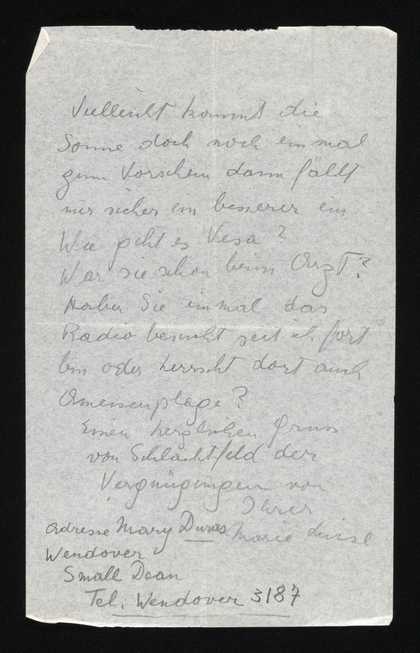 Vielleicht kommt die
Sonne doch noch einmal
zum Vorschein dann fällt
mir sicher ein besserer ein
Wie geht es Vesa?
War sie schon beim Arzt?
Haben Sie einmal das
Radio benützt seit ich fort
bin oder herrscht dort auch
Ameisenplage?
Einen herzlichen Gruss
von Schlachtfeld der
Vergnügungen von
Ihrer
Marie Luise
Adresse Mary Duras
Wendover
Small Dean
Tel: Wendover 3187